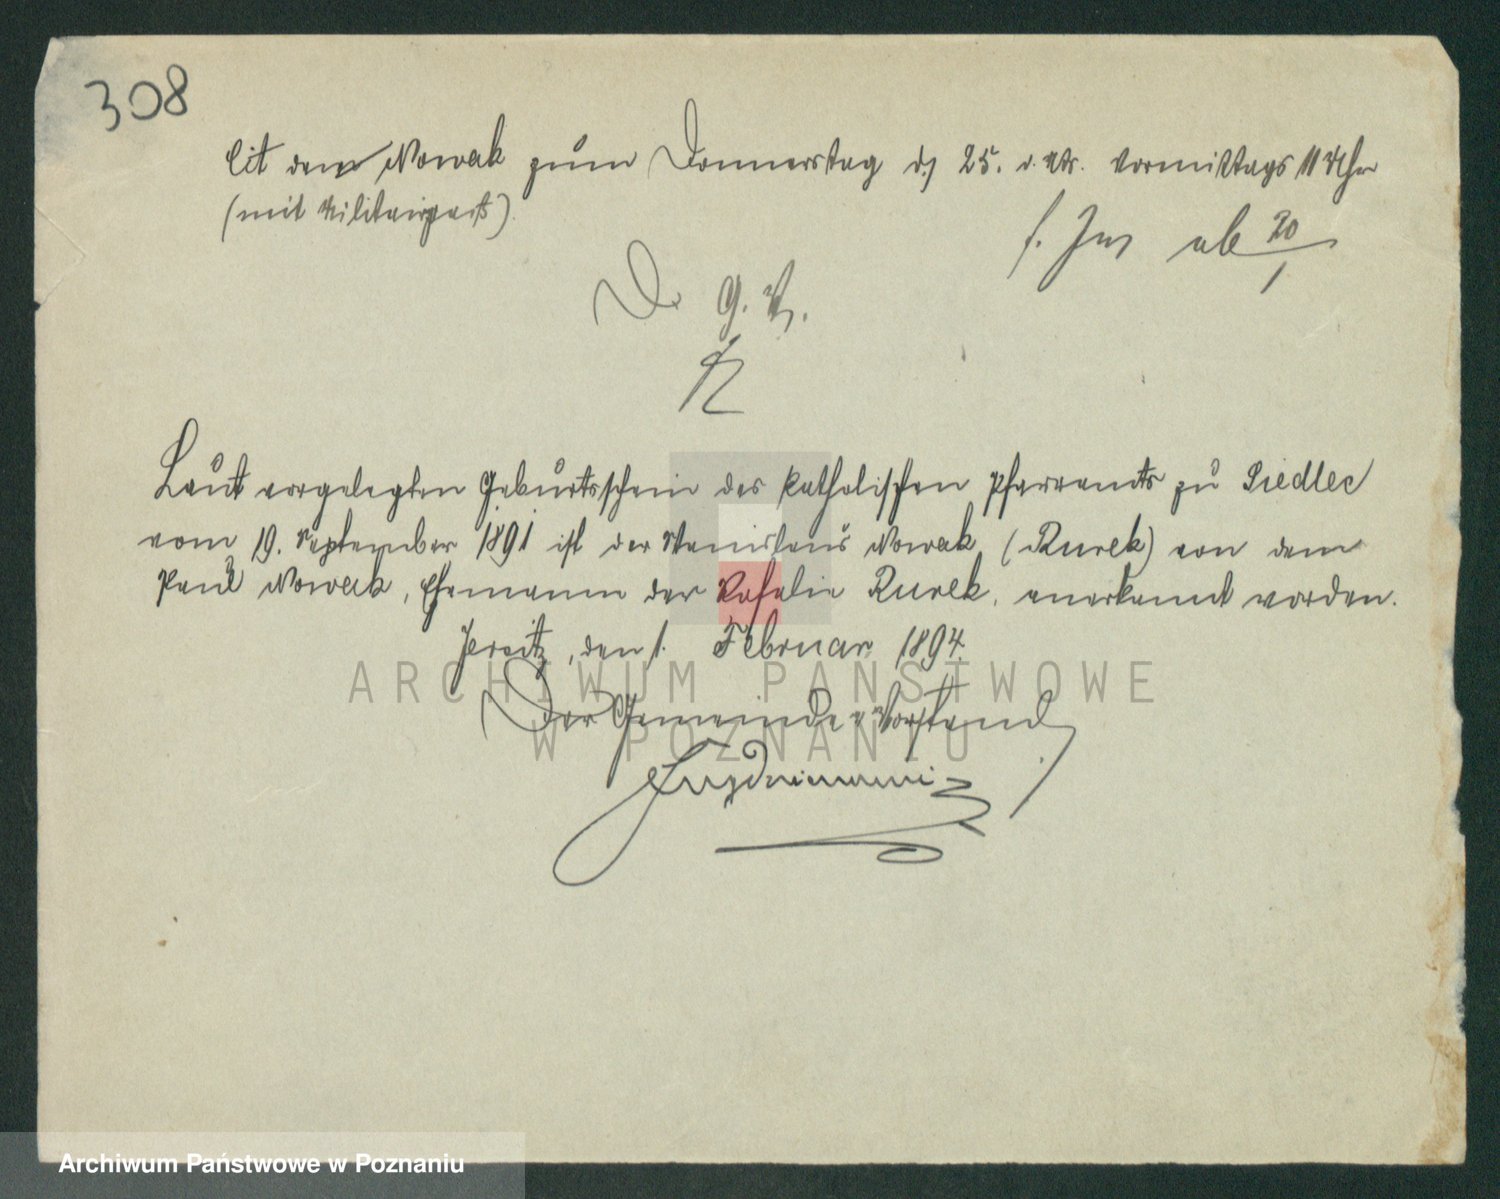 308
Cit dem Nowak zum Donnerstag d. 25. d. Mts. Vormittags 11 Uhr
(mit Militairpass).
ab 20/1
D. G. V.
Laut vorgelegten Geburtsschein des katholischen Pfarramts zu Siedlec
vom 19. September 1891 ist der Stanislaus Nowak (Kurek) von dem
Paul Nowak, Ehemann der Rosalie Kurek, anerkannt worden.
Jersitz, den 1. Februar 1894.
Der Gemeinde-Vorstand
ARCHIWUM PAŃSTWOWE
W POZNANIU
Archiwum Państwowe w Poznaniu